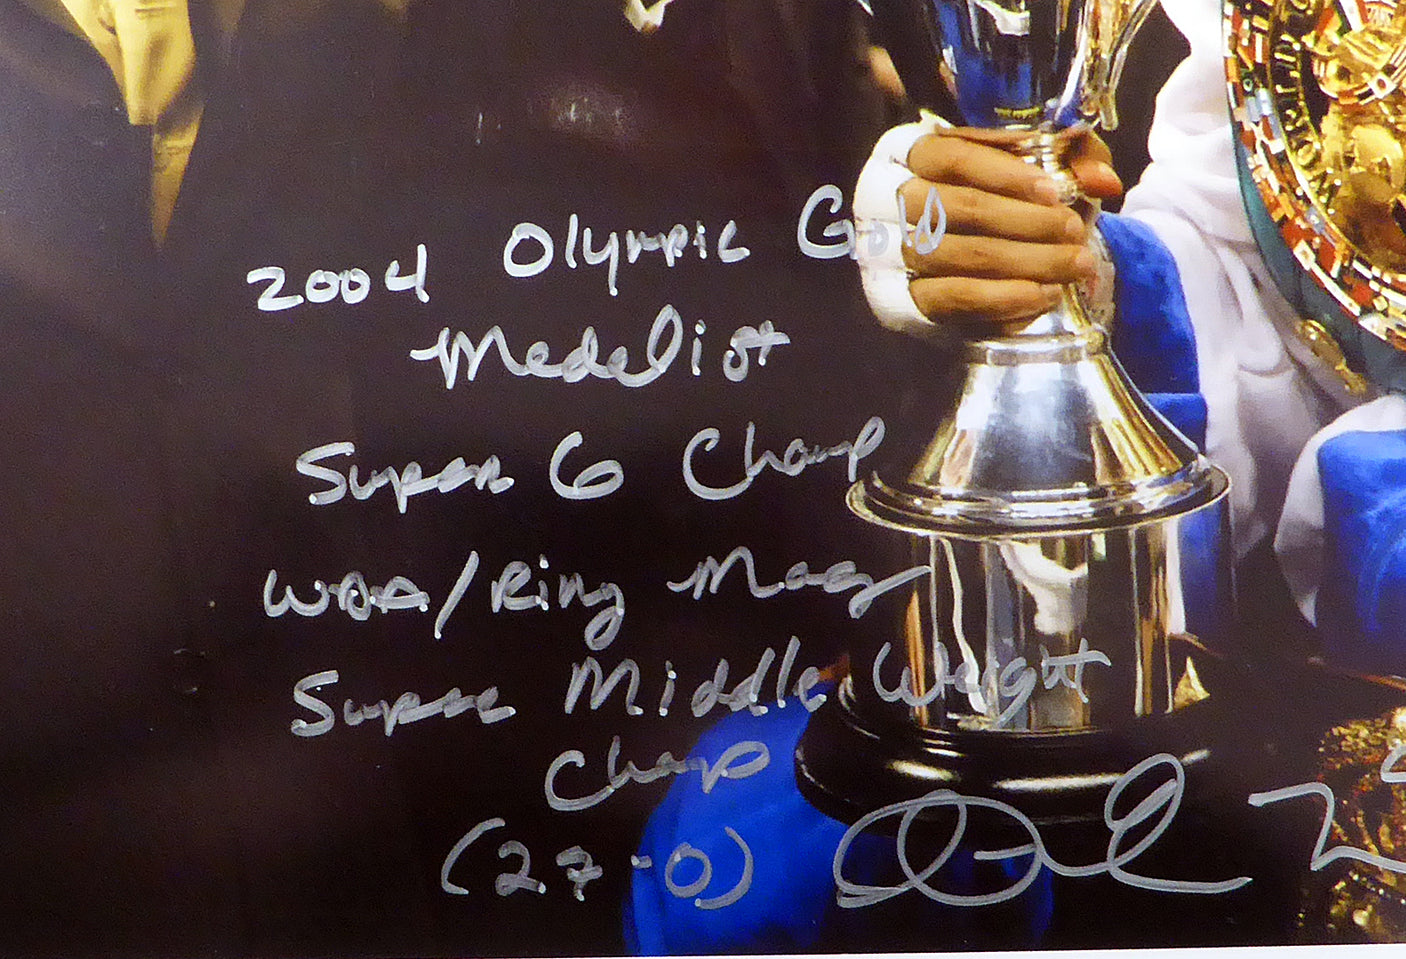 2004 Olympic Gold
Medalist
Super 6 Champ
WBA/Ring Mag
Super Middle Weight
Champ
(27-0)